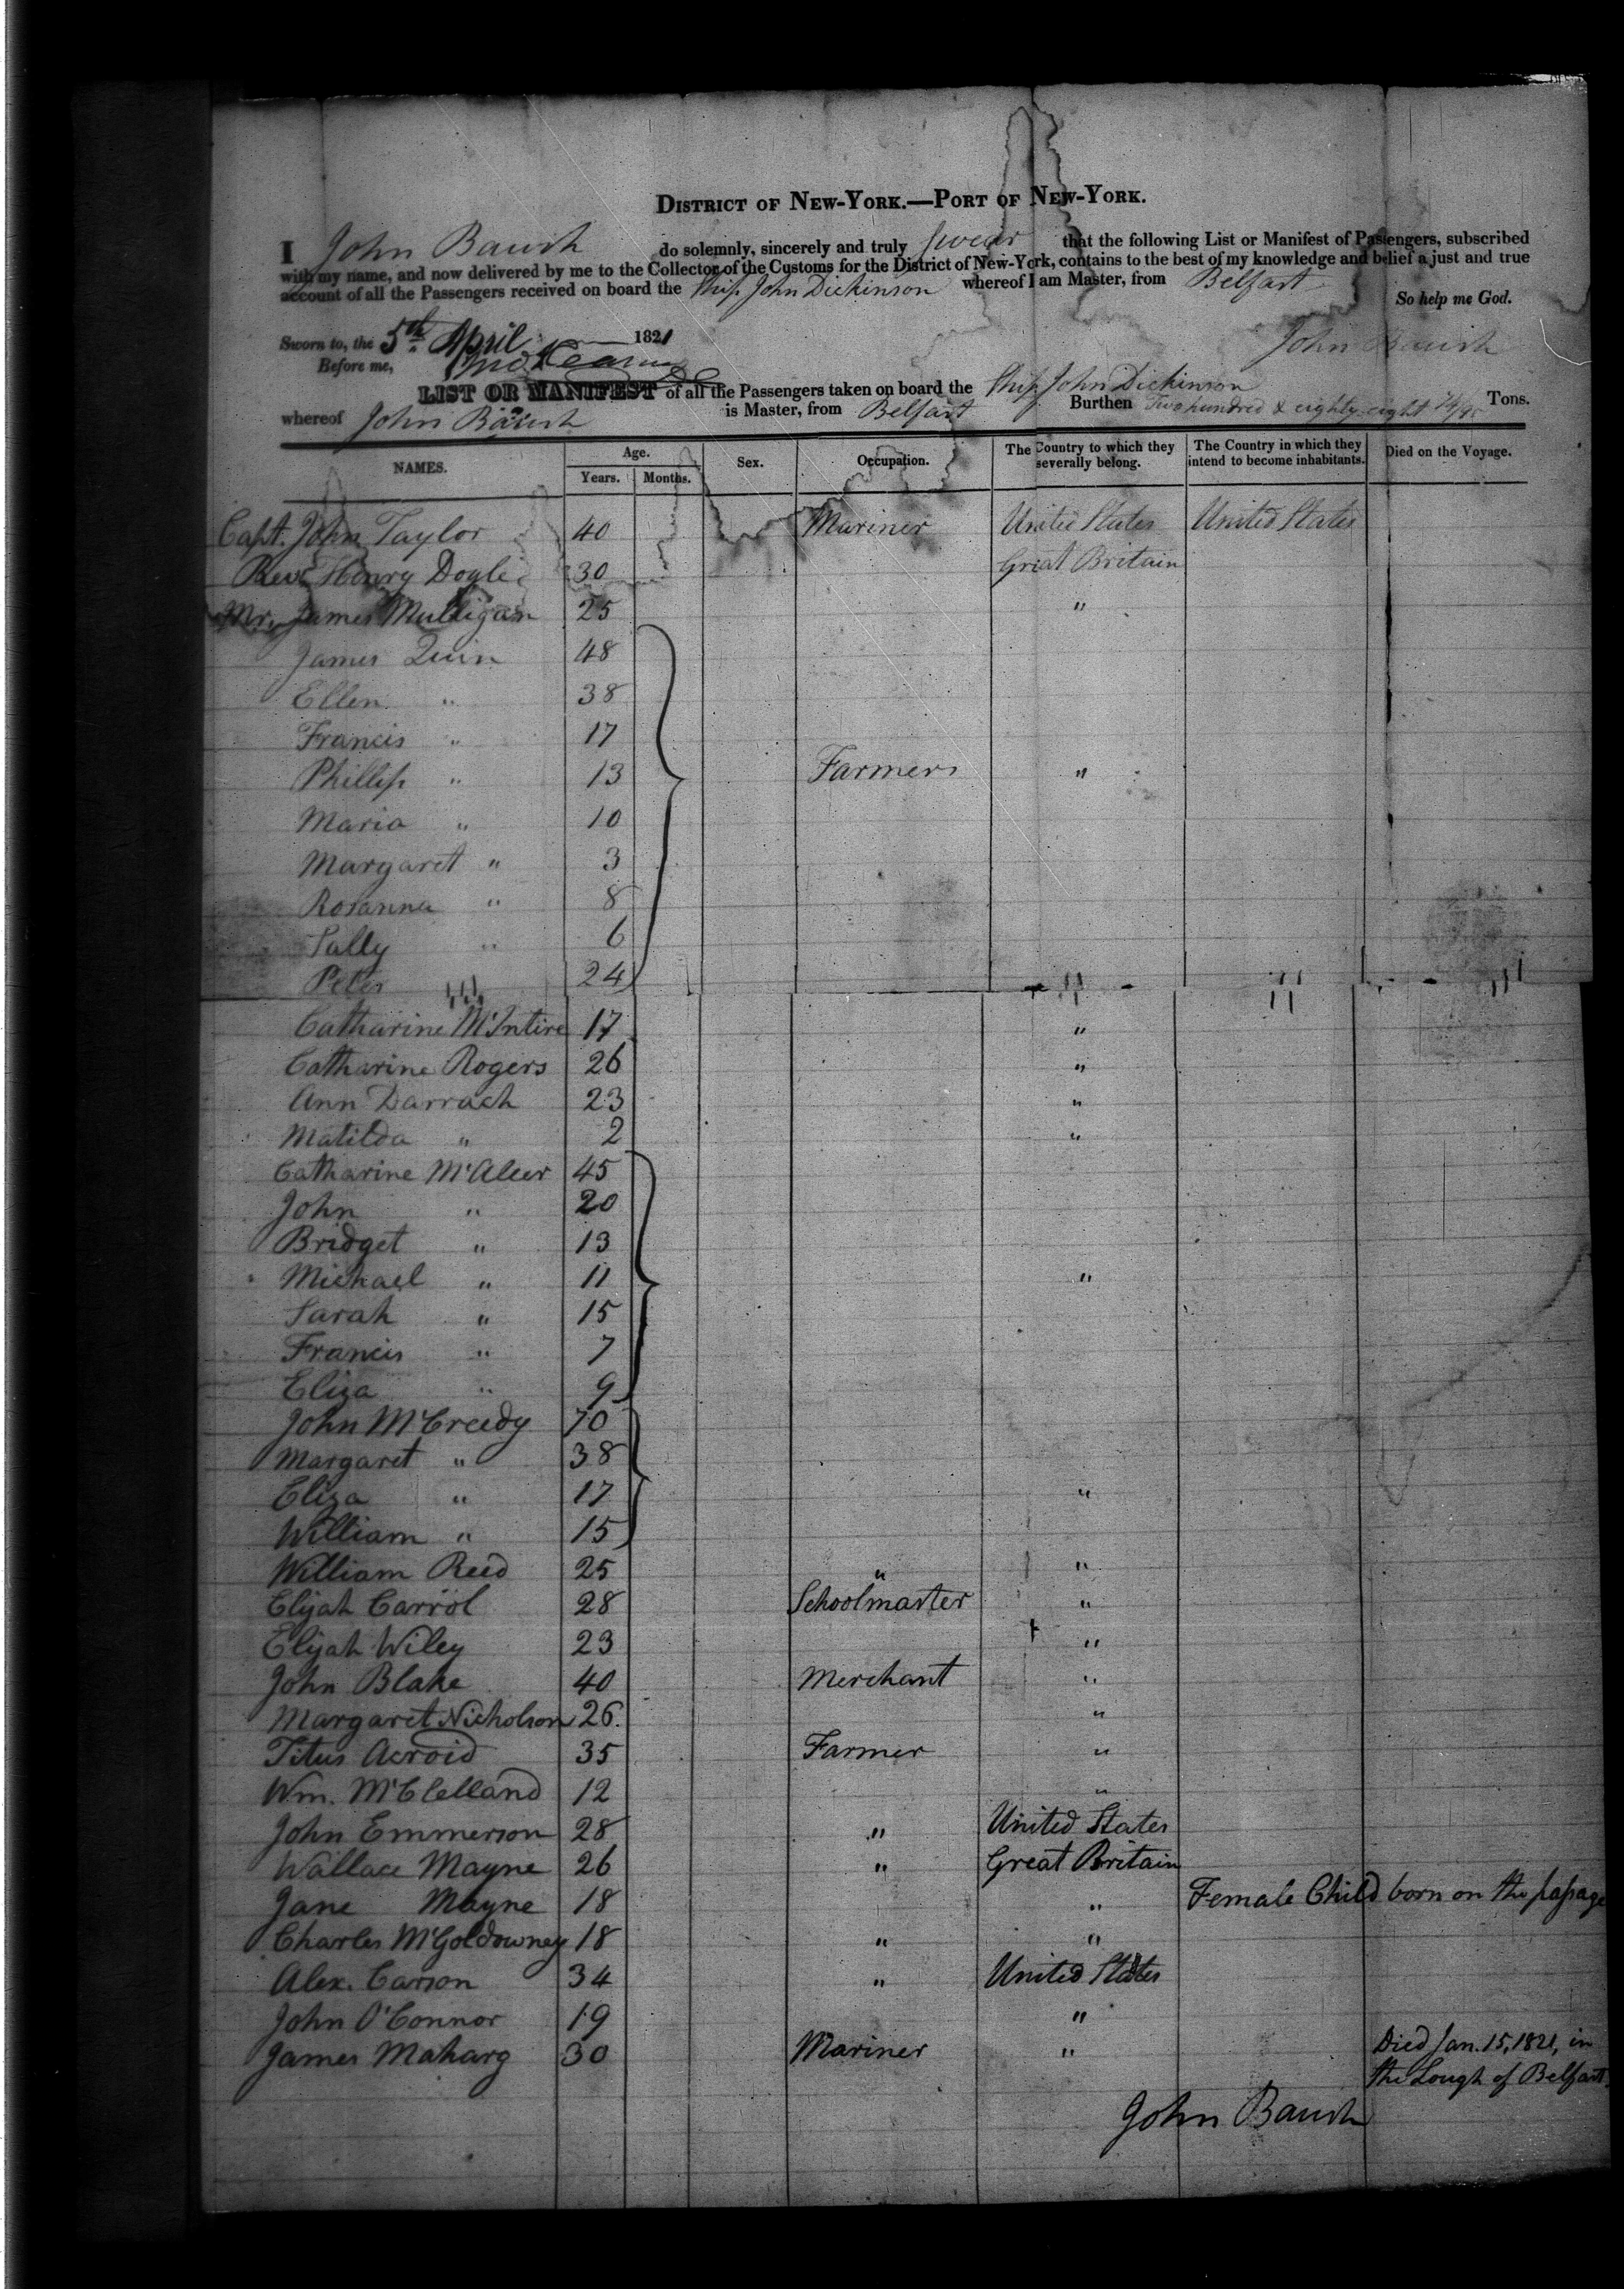 DISTRICT OF NEW-YORK.—PORT OF NEW-YORK.
I John Baush do solemnly, sincerely and truly swear that the following List or Manifest of Passengers, subscribed
with my name, and now delivered by me to the Collector of the Customs for the District of New-York, contains to the best of my knowledge and belief a just and true
account of all the Passengers received on board the Ship John Dickinson whereof I am Master, from Belfast
So help me God.
Sworn to, the 5th April 1821
John Baush
Before me,
LIST OR MANIFEST of all the Passengers taken on board the Ship John Dickinson
whereof John Baush is Master, from Belfast Burthen Two hundred & eighty eight Tons.
NAMES. Age. Years. Months. Sex. Occupation. The Country to which they severally belong. The Country in which they intend to become inhabitants. Died on the Voyage.
Capt. John Taylor 40 Mariner United States United States
Revd. Henry Doyle 30 Great Britain
Mr. James Mulligan 25 "
James Quin 48
Ellen " 38
Francis " 17
Phillip " 13 Farmers "
Maria " 10
Margaret " 3
Rosanna " 8
Sally " 6
Peter 24
Catharine McIntire 17 "
Catharine Rogers 26 "
Ann Darrach 23 "
Matilda " 2 "
Catharine McAleer 45
John " 20
Bridget " 13
Michael " 11 "
Sarah " 15
Francis " 7
Eliza " 9
John McCreedy 70
Margaret " 38
Eliza " 17 "
William " 15
William Reed 25 " "
Elijah Carrol 28 Schoolmaster "
Elijah Wiley 23 "
John Blake 40 Merchant "
Margaret Nicholson 26. "
Titus Acroid 35 Farmer "
Wm. McClelland 12 "
John Emmerson 28 " United States
Wallace Mayne 26 " Great Britain
Jane Mayne 18 " Female Child born on the passage
Charles McGoldowney 18 " "
Alex. Carson 34 " United States
John O'Connor 19 "
James Maharg 30 Mariner " Died Jan. 15, 1821, in
the Lough of Belfast.
John Baush